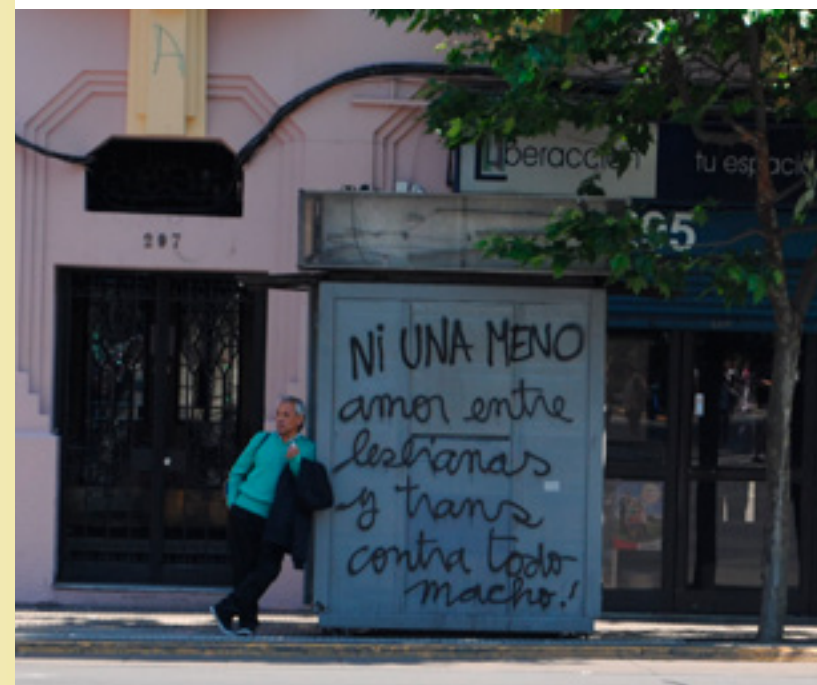 A
Liberacción
tu espacio
207
NI UNA MENO
amor entre
lesbianas
y trans
contra todo
macho!